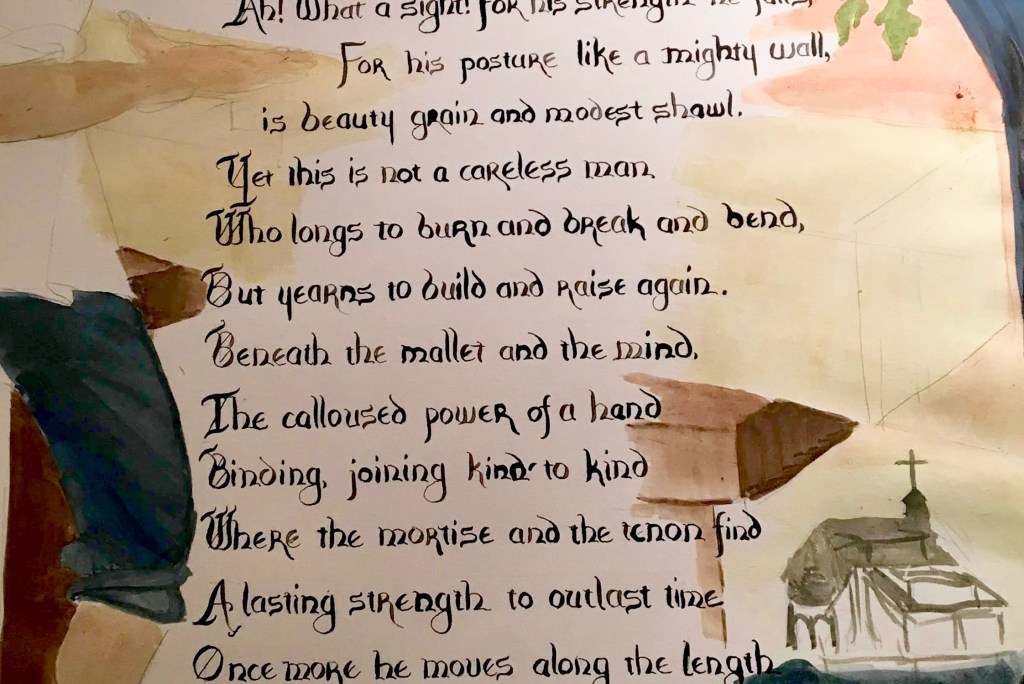 Ah! What a sight! for his strength he falls,
For his posture like a mighty wall,
is beauty grain and modest shawl.
Yet this is not a careless man
Who longs to burn and break and bend,
But yearns to build and raise again.
Beneath the mallet and the mind,
The calloused power of a hand
Binding, joining kind to kind
Where the mortise and the tenon find
A lasting strength to outlast time
Once more he moves along the length